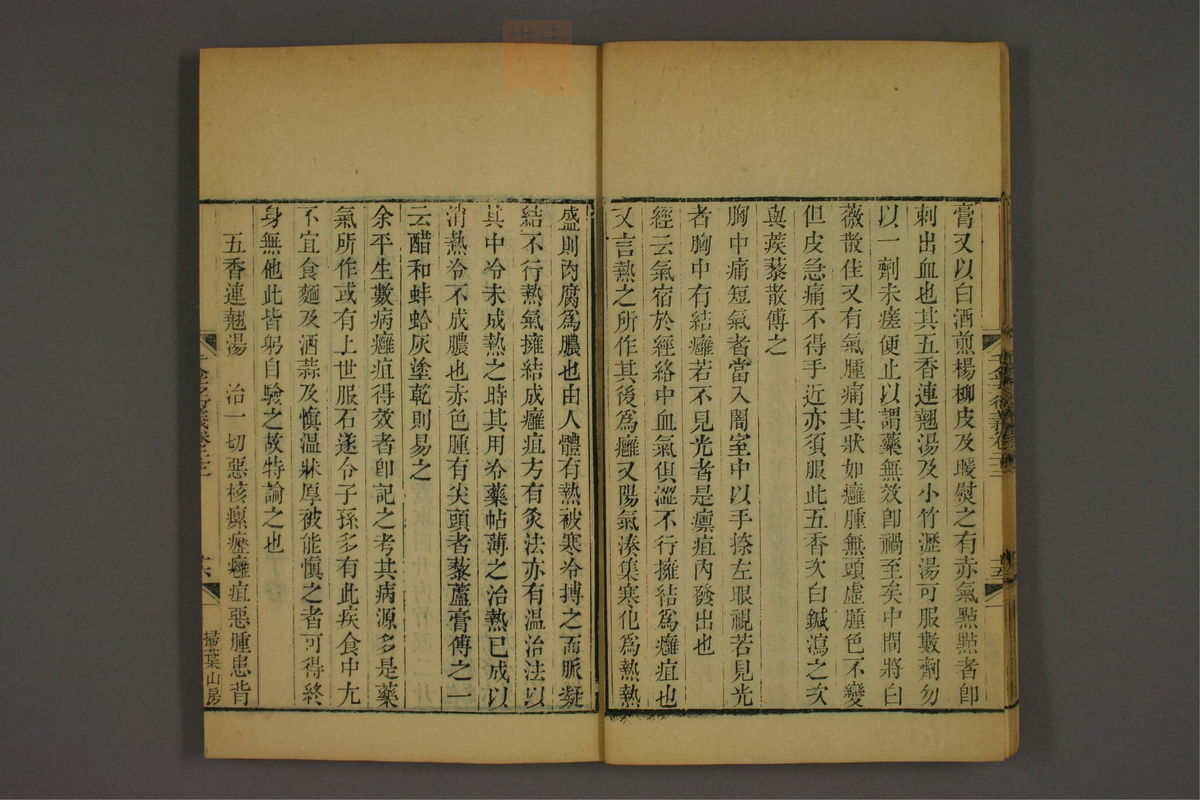 膏又以白酒煎楊柳皮及暖熨之有赤氣㸃㸃者卽
刺出血也其五香連翹湯及小竹瀝湯可服數劑勿
以一劑未瘥便止以謂藥無效卽禍至矣中間將白
薇散佳又有氣腫痛其狀如癰腫無頭虛腫色不變
但皮急痛不得手近亦須服此五香次白鍼瀉之次
與蒺藜散傅之
胸中痛短氣者當入闇室中以手捺左眼視若見光
者胸中有結癰若不見光者是瘭疽內發出也
經云氣宿於經絡中血氣俱澀不行擁結爲癰疽也
又言熱之所作其後爲癰又陽氣湊集寒化爲熱熱
盛則肉腐爲膿也由人體有熱被寒冷搏之而脈凝
結不行熱氣擁結成癰疽方有灸法亦有温治法以
其中冷未成熱之時其用冷藥帖薄之治熱已成以
消熱冷不成膿也赤色腫有尖頭者藜蘆膏傅之一
云醋和蚌蛤灰塗乾則易之
余平生數病癰疽得效者卽記之考其病源多是藥
氣所作或有上世服石遂令子孫多有此疾食中尤
不宜食麵及酒蒜及愼温牀厚被能愼之者可得終
身無他此皆躬自驗之故特論之也
五香連翹湯 治一切惡核瘰癧癰疽惡腫患背
掃葉山房